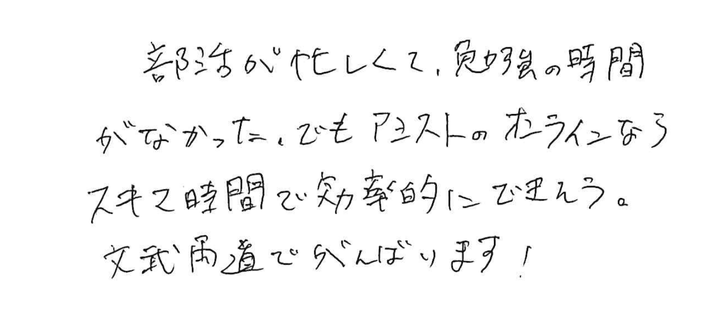 部活が忙しくて、勉強の時間
がなかった、でもアシストのオンラインなら
スキマ時間で効率的にできそう。
文武両道でがんばります!